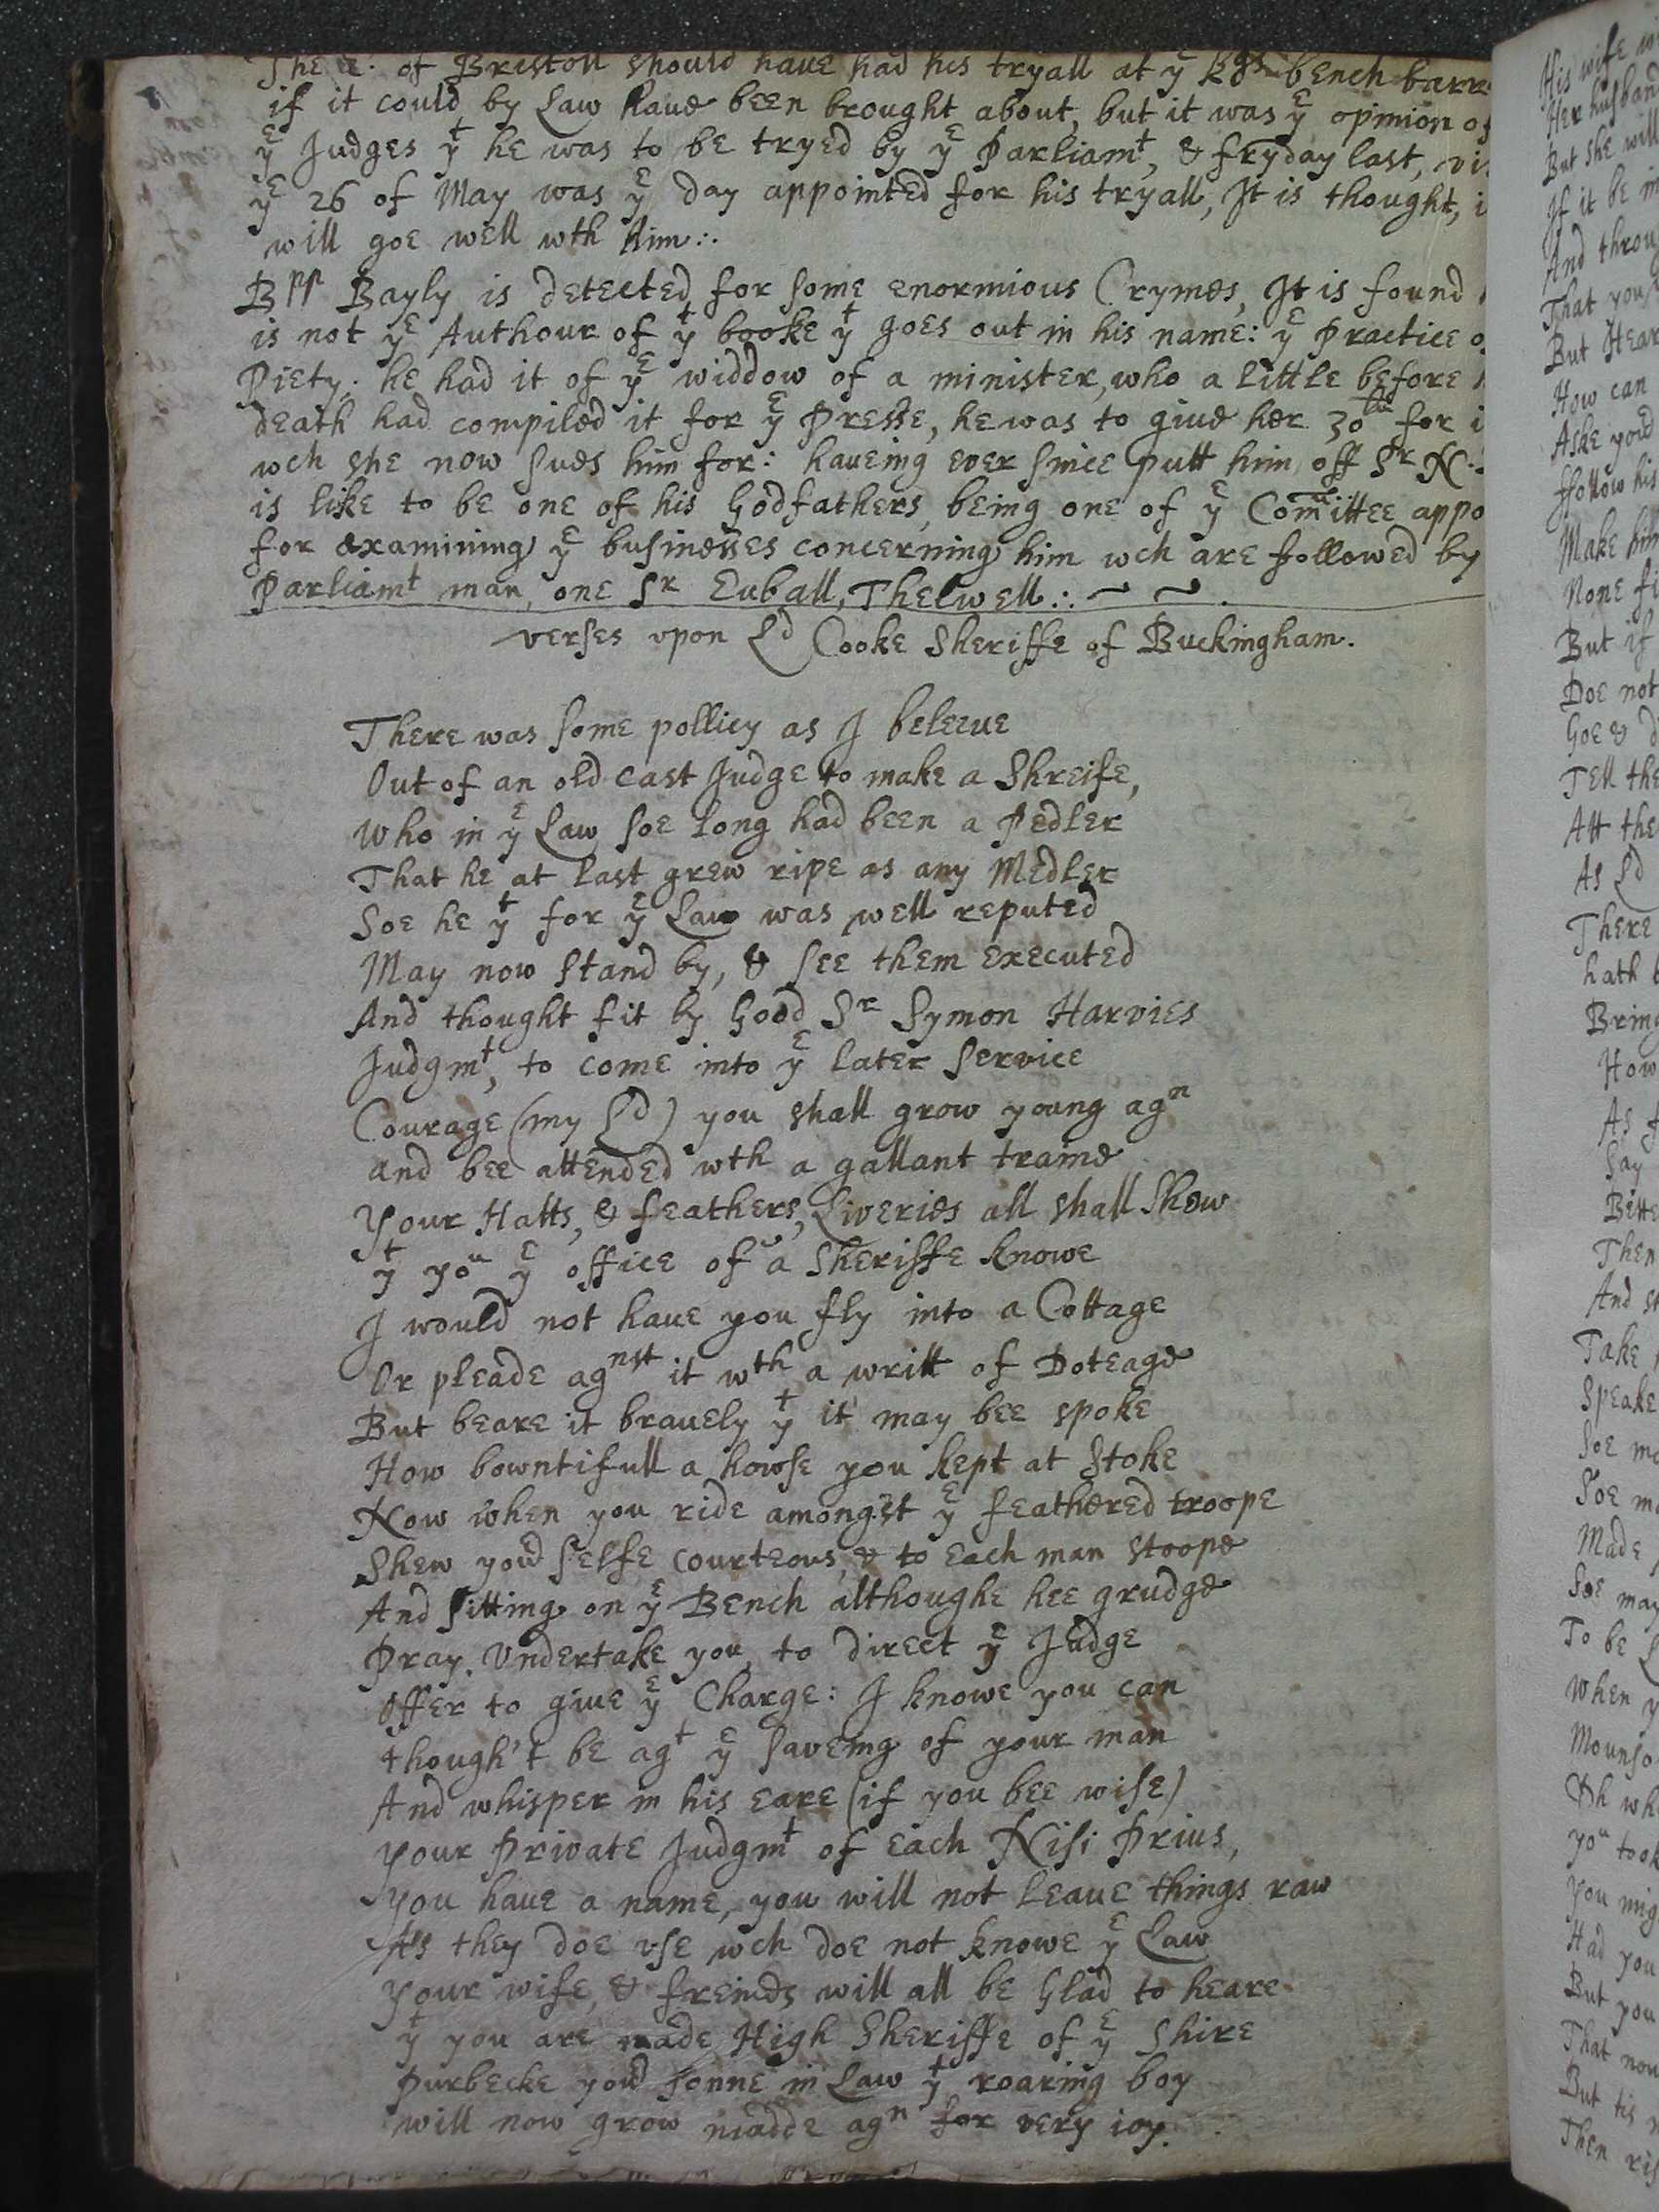 The E. of Bristoll should haue had his tryall at yͤ Kgs bench barr
if it could by Law haue been brought about, but it was yͤ opinion of
yͤ Judges yͭ he was to be tryed by yͤ Parliamᵗ, & fryday last, vi
yͤ 26 of May was yͤ day appointed for his tryall, It is thought, i
will goe well wth him:.
Bpp Bayly is detected for some enormious Crymes, It is found
is not yͤ Authour of yͭ booke yͭ goes out in his name: yͤ Practice o
Piety: he had it of yͤ widdow of a minister, who a little before
death had compiled it for yͤ Presse, he was to giue her 30ˡⁱ for i
wch she now sues him for: haueing euer since putt him off Sʳ N.
is like to be one of his Godfathers, being one of yͤ Comittee appo
for examining yͤ businesses concerning him wch are followed by
Parliamᵗ man, one Sʳ Euball, Thelwell:. ~ ~.
verses vpon Lᵈ Cooke Sheriffe of Buckingham.
There was some pollicy as I beleeue
Out of an old cast Judge to make a Shreife,
Who in yͤ Law soe long had been a Pedler
That he at last grew ripe as any Medler
Soe he yͭ for yͤ Law was well reputed
May now stand by, & see them executed
And thought fit by Good Sʳ Symon Harvies
Judgmᵗ, to come into yͤ later service
Courage (my Lᵈ) you shall grow young agⁿ
and bee attended wth a gallant traine
Your Hatts, & feathers, Liveries all shall shew
yͭ yoᵘ yͤ office of a Sheriffe knowe
I would not haue you fly into a Cottage
Or pleade agⁿˢᵗ it wᵗʰ a writt of Doteage
But beare it brauely yͭ it may bee spoke
How bowntifull a howse you kept at Stoke
Now when you ride amongst yͤ feathered troope
Shew youʳ selfe courteous, & to each man stoope
And sitting on yͤ Bench althoughe hee grudge
Pray. Vndertake you, to direct yͤ Judge
Offer to giue yͤ Charge: I knowe you can
though't be agᵗ yͤ saveing of your man
And whisper in his eare (if you bee wise)
your Private Judgmᵗ of each Nisi Prius,
you haue a name, you will not leaue things raw
As they doe vse wch doe not knowe yͤ Law
Your wife, & freinds will all be Glad to heare
yͭ you are made High Sheriffe of yͤ Shire
Purbecke youʳ sonne in Law yͭ roaring boy
will now grow madde agⁿ for very ioy.
His wife
Her husban
But she will
If it be in
And throu
That you
But Hear
How can
Aske youʳ
ffollow his
Make him
None fi
But if
Doe not
Goe & d
Tell the
Att the
As Lᵈ
There
hath
Bring
How
As f
Say
Bitte
Then
And st
Take
Speake
Soe ma
Soe ma
Made
Soe may
To be L
When y
Mounso
Oh wh
yoᵘ took
You mig
Had you
But you
That now
But tis
Then ris